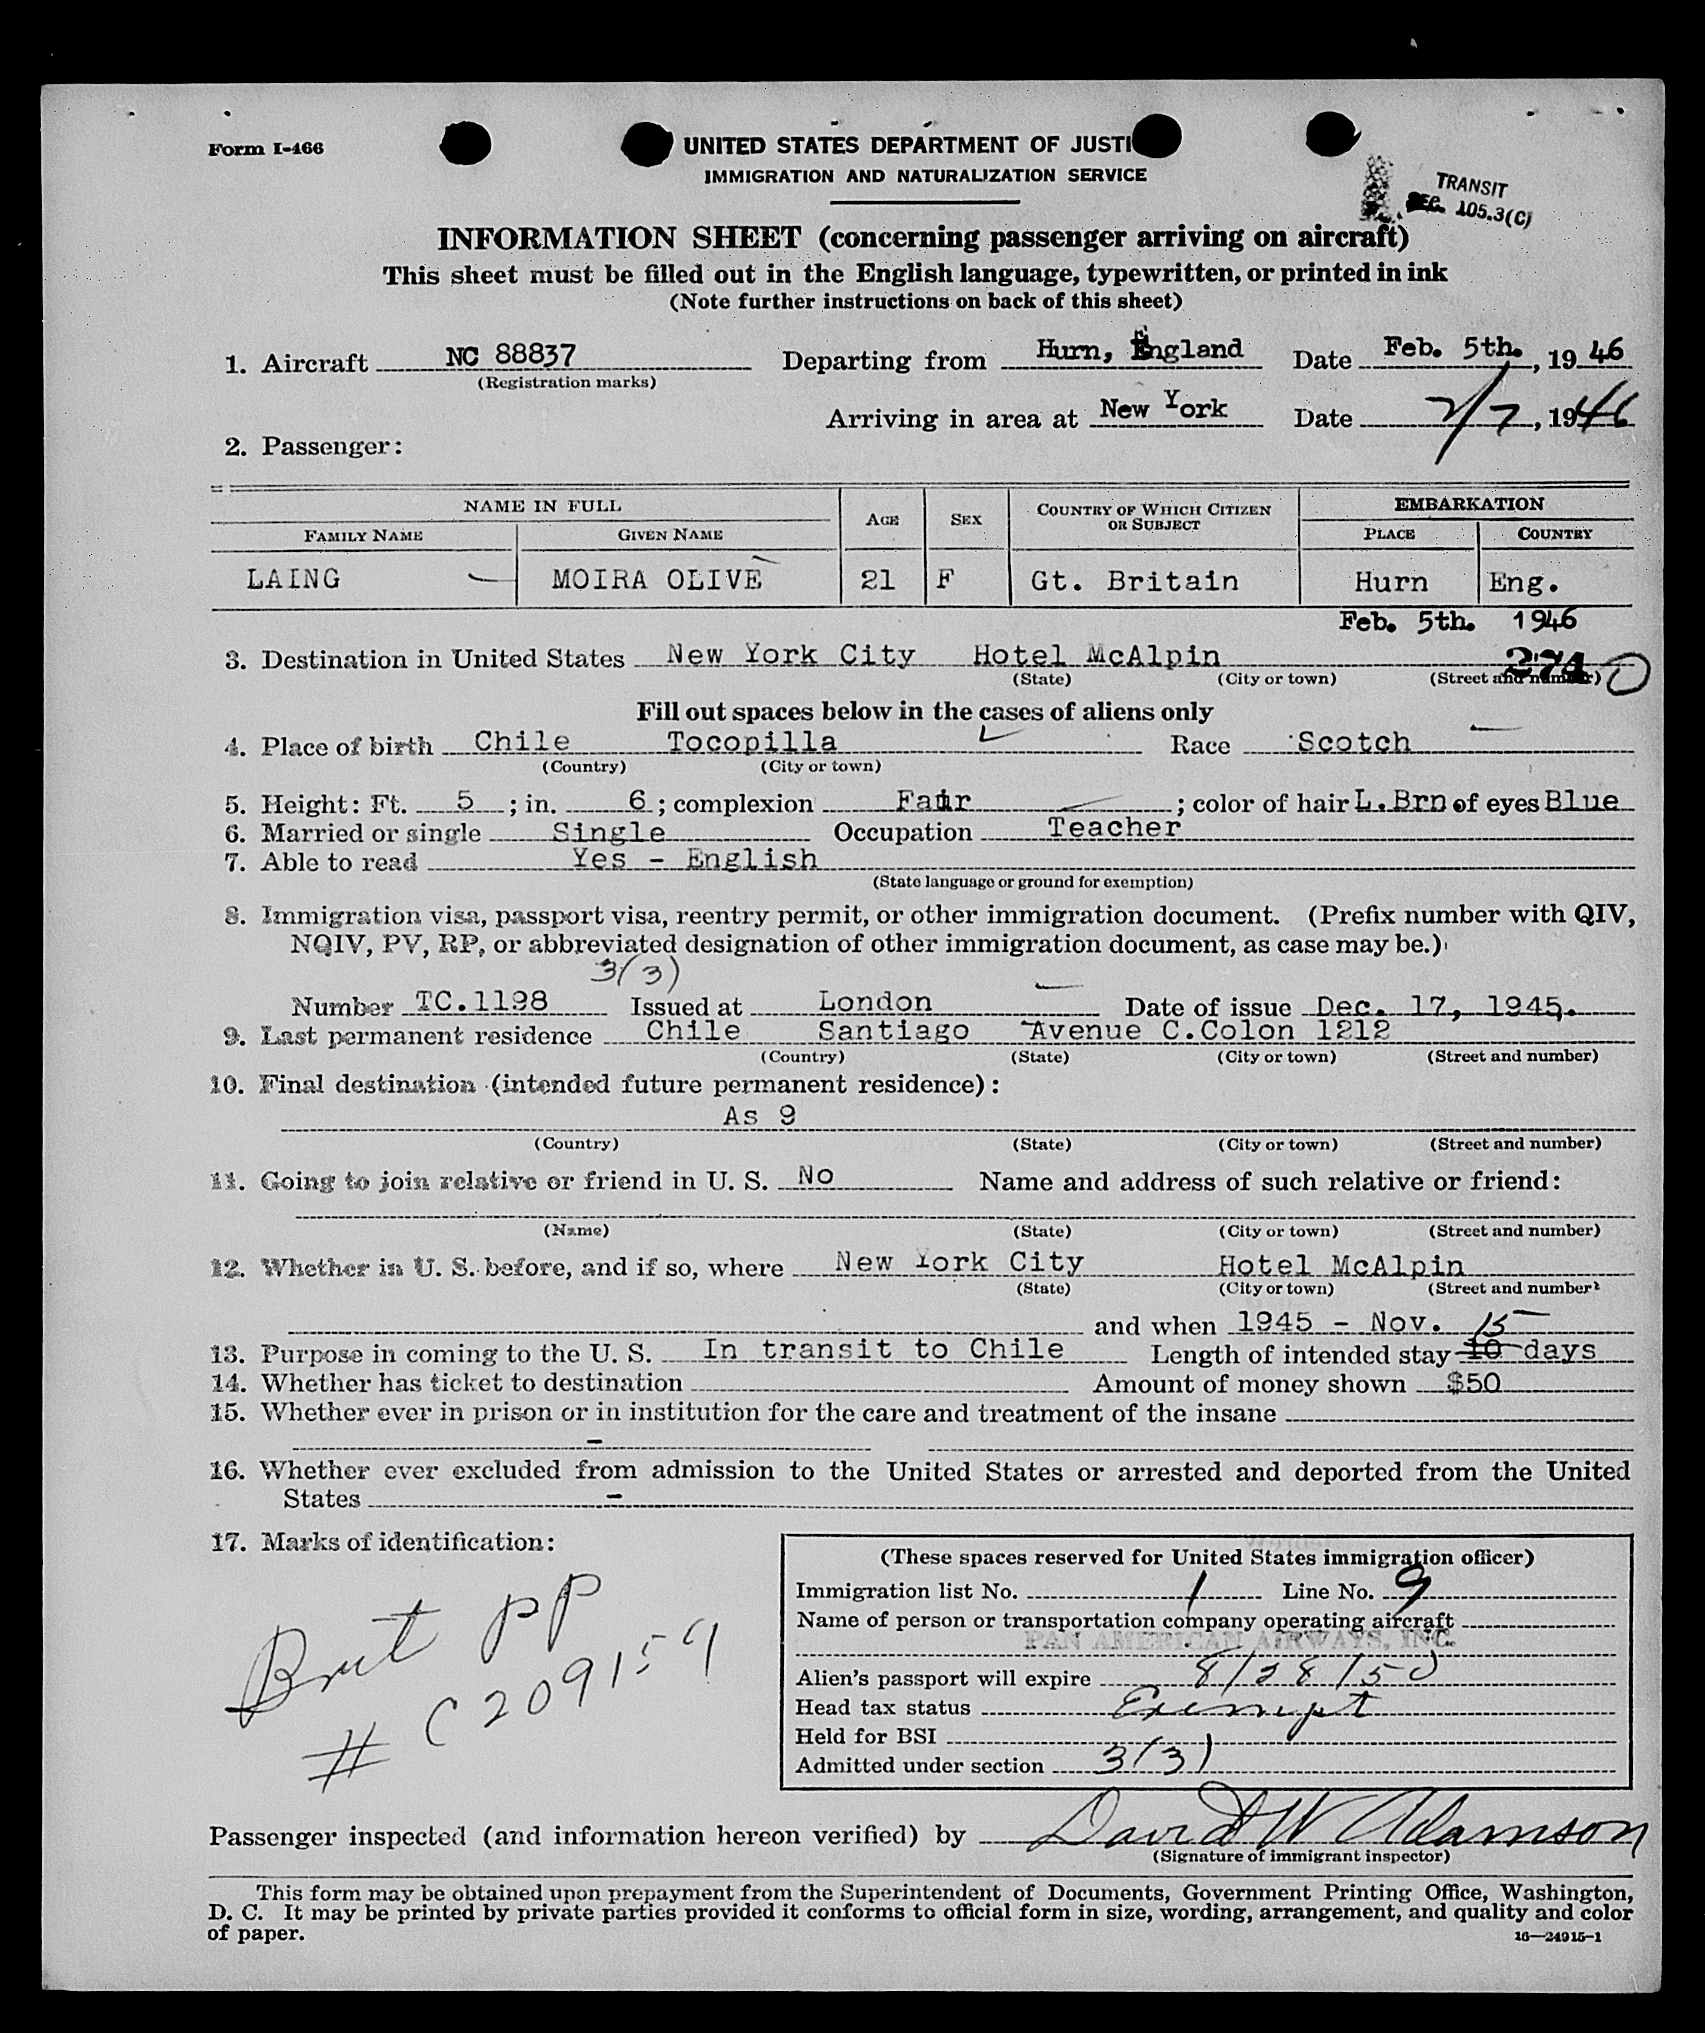 Form I-466
UNITED STATES DEPARTMENT OF JUSTI
IMMIGRATION AND NATURALIZATION SERVICE
TRANSIT
SEC. 105.3(C)
INFORMATION SHEET (concerning passenger arriving on aircraft)
This sheet must be filled out in the English language, typewritten, or printed in ink
(Note further instructions on back of this sheet)
1. Aircraft NC 88837 Departing from Hurn, England Date Feb. 5th., 1946
(Registration marks)
Arriving in area at New York Date 2/7, 1946
2. Passenger:
NAME IN FULL AGE SEX COUNTRY OF WHICH CITIZEN OR SUBJECT EMBARKATION
FAMILY NAME GIVEN NAME PLACE COUNTRY
LAING MOIRA OLIVE 21 F Gt. Britain Hurn Eng.
Feb. 5th. 1946
3. Destination in United States New York City Hotel McAlpin 274 0
(State) (City or town) (Street and number)
Fill out spaces below in the cases of aliens only
4. Place of birth Chile Tocopilla Race Scotch
(Country) (City or town)
5. Height: Ft. 5; in. 6; complexion Fair; color of hair L.Brn of eyes Blue
6. Married or single Single Occupation Teacher
7. Able to read Yes - English
(State language or ground for exemption)
8. Immigration visa, passport visa, reentry permit, or other immigration document. (Prefix number with QIV,
NQIV, PV, RP, or abbreviated designation of other immigration document, as case may be.)
3(3)
Number TC.1198 Issued at London Date of issue Dec. 17, 1945.
9. Last permanent residence Chile Santiago Avenue C.Colon 1212
(Country) (State) (City or town) (Street and number)
10. Final destination (intended future permanent residence):
As 9
(Country) (State) (City or town) (Street and number)
11. Going to join relative or friend in U. S. No Name and address of such relative or friend:
(Name) (State) (City or town) (Street and number)
12. Whether in U. S. before, and if so, where New York City Hotel McAlpin
(State) (City or town) (Street and number)
and when 1945 - Nov. 15
13. Purpose in coming to the U. S. In transit to Chile Length of intended stay 10 days
14. Whether has ticket to destination Amount of money shown $50
15. Whether ever in prison or in institution for the care and treatment of the insane
-
16. Whether ever excluded from admission to the United States or arrested and deported from the United
States -
17. Marks of identification:
Brit PP
# C209159
(These spaces reserved for United States immigration officer)
Immigration list No. 1 Line No. 9
Name of person or transportation company operating aircraft
PAN AMERICAN AIRWAYS, INC.
Alien's passport will expire 8/28/50
Head tax status Exempt
Held for BSI
Admitted under section 3(3)
Passenger inspected (and information hereon verified) by David W Adamson
(Signature of immigrant inspector)
This form may be obtained upon prepayment from the Superintendent of Documents, Government Printing Office, Washington,
D. C. It may be printed by private parties provided it conforms to official form in size, wording, arrangement, and quality and color
of paper.
16—24915-1